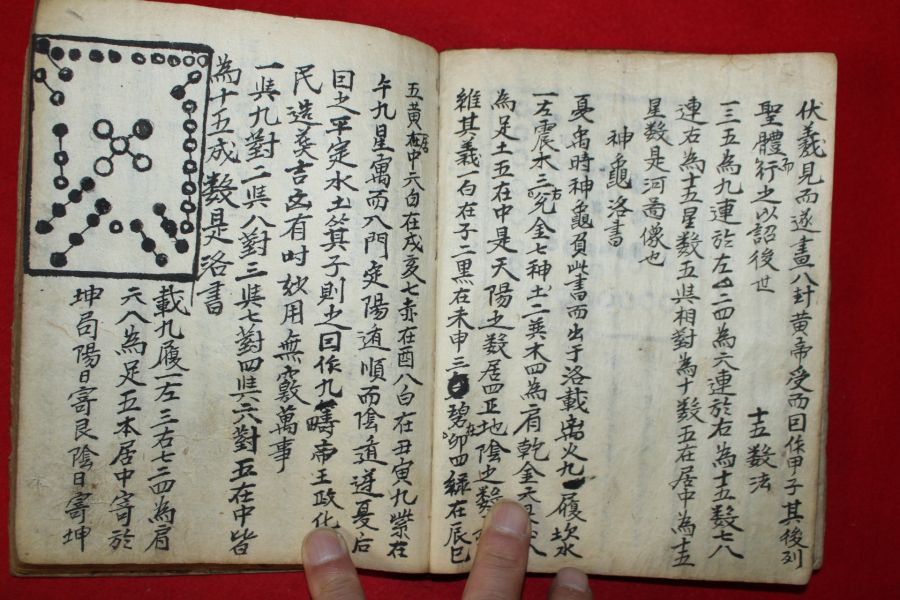 伏羲見而遂畫八卦黃帝受而曰作甲子其後列
聖體而行之以詔後世
十五數法
一三五為九連於左二四為六連於右為十五數七八
連右為十五星數五與相對為十數五在居中為十五
星數是河圖像也
神龜洛書
夏禹時神龜負此書而出于洛載离火九履坎水
一左震木三右兌金七神土二巽木四為肩乾金六艮八
為足土五在中是天陽之數居四正地陰之數
維其義一白在子二黑在未申三碧在卯四綠在辰巳
五黃居在中六白在戌亥七赤在酉八白在丑寅九紫在
午九星寓而八門定陽遁順而陰遁逆夏后
曰之平定水土箕子則之曰作九疇帝王政化
民造葬吉凶有時妙用無窮萬事
一與九對二與八對三與七對四與六對五在中皆
為十五成數是洛書
載九履一左三右七二四為肩
六八為足五本居中寄於
坤局陽日寄艮陰日寄坤